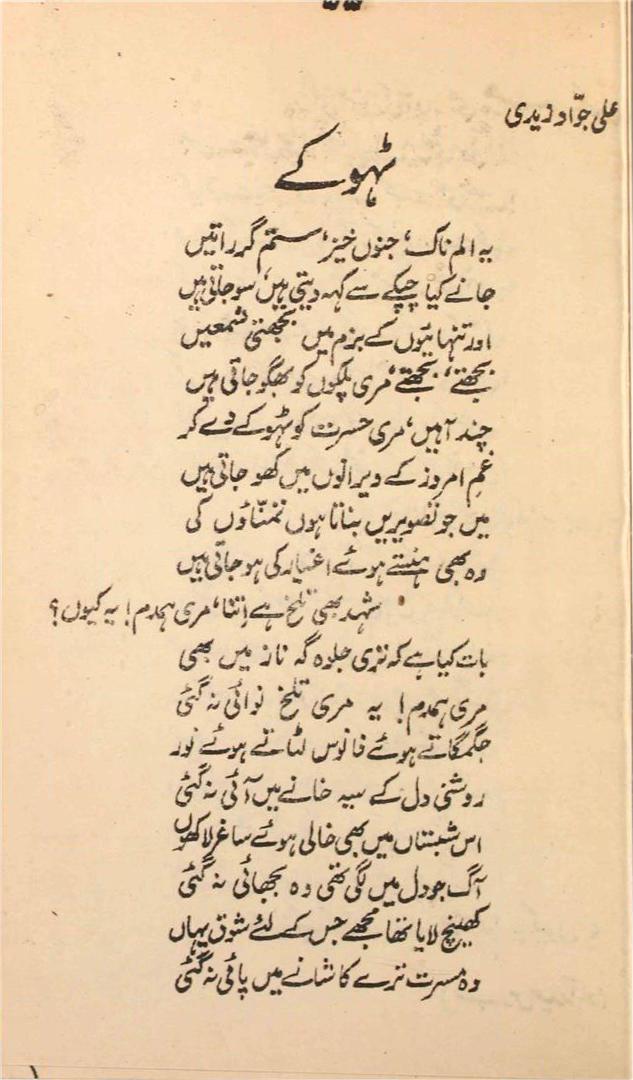 علی جوّاد زیدی
ٹہوکے
یہ الم ناک، جنوں خیز، ستم گر راتیں
جانے کیا چپکے سے کہہ دیتی ہیں، سو جاتی ہیں
اور تنہائیوں کے بزم میں بجھتی شمعیں
بجھتے، بجھتے، مری پلکوں کو بھگو جاتی ہیں
چند آہیں، مری حسرت کو ٹہوکے دے کر
غمِ امروز کے ویرانوں میں کھو جاتی ہیں
میں جو تصویریں بناتا ہوں تمنّاؤں کی
وہ بھی ہنستے ہوئے اغیار کی ہو جاتی ہیں
شہد بھی تلخ ہے اِتنا، مری ہمدم! یہ کیوں؟
بات کیا ہے کہ تری جلوہ گہ ناز میں بھی
مری ہمدم! یہ مری تلخ نوائی نہ گئی
جگمگاتے ہوئے فانوس لٹاتے ہوئے نور
روشنی دل کے سیہ خانے میں آئی نہ گئی
اس شبستاں میں بھی خالی ہوئے ساغر لاکھوں
آگ جو دل میں لگی تھی وہ بجھائی نہ گئی
کھینچ لایا تھا مجھے جس کے لئے شوق یہاں
وہ مسرت ترے کاشانے میں پائی نہ گئی